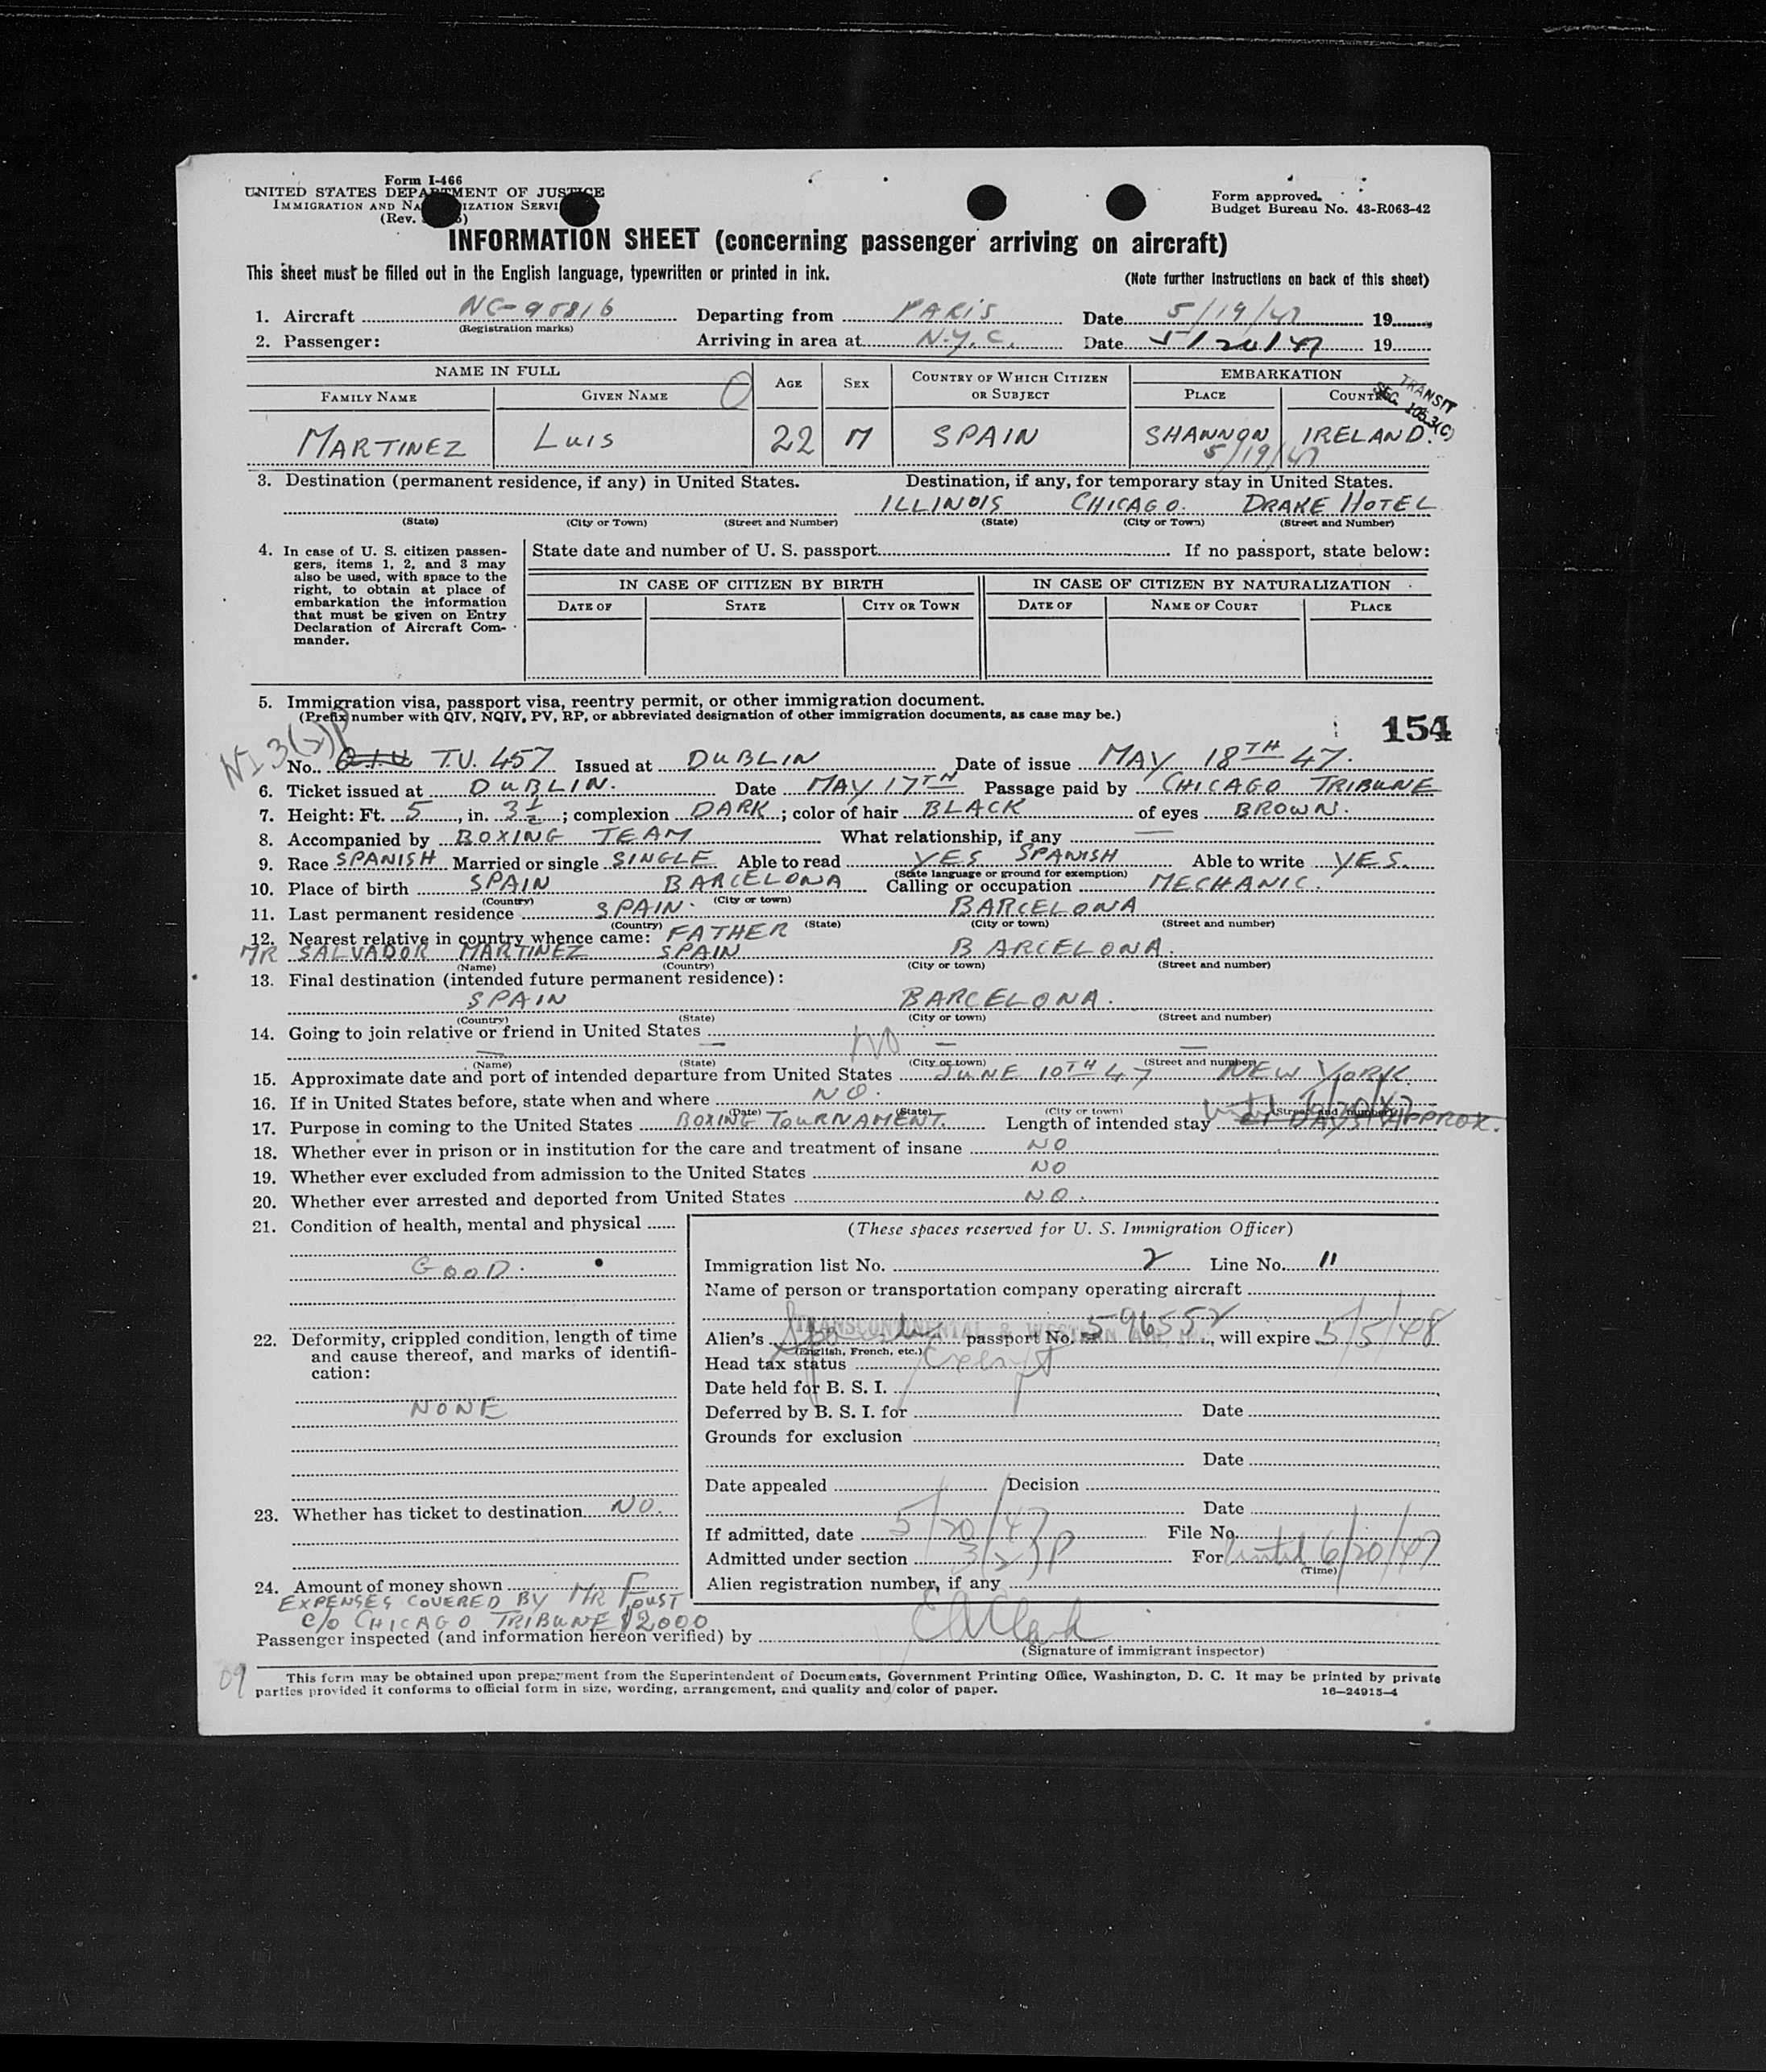 Form I-466
UNITED STATES DEPARTMENT OF JUSTICE
IMMIGRATION AND NATURALIZATION SERVICE
(Rev.
Form approved.
Budget Bureau No. 43-R063-42
INFORMATION SHEET (concerning passenger arriving on aircraft)
This sheet must be filled out in the English language, typewritten or printed in ink. (Note further instructions on back of this sheet)
1. Aircraft NC-95816 Departing from PARIS Date 5/19/47 19
(Registration marks)
2. Passenger: Arriving in area at N.Y.C. Date 5/20/47 19
NAME IN FULL AGE SEX COUNTRY OF WHICH CITIZEN OR SUBJECT EMBARKATION
FAMILY NAME GIVEN NAME PLACE COUNTRY
TRANSIT
SEC. 103.3(C)
MARTINEZ LUIS 22 M SPAIN SHANNON IRELAND.
5/19/47
3. Destination (permanent residence, if any) in United States. Destination, if any, for temporary stay in United States.
ILLINOIS CHICAGO. DRAKE HOTEL
(State) (City or Town) (Street and Number) (State) (City or Town) (Street and Number)
4. In case of U. S. citizen passengers, items 1, 2, and 3 may also be used, with space to the right, to obtain at place of embarkation the information that must be given on Entry Declaration of Aircraft Commander.
State date and number of U. S. passport If no passport, state below:
IN CASE OF CITIZEN BY BIRTH IN CASE OF CITIZEN BY NATURALIZATION
DATE OF STATE CITY OR TOWN DATE OF NAME OF COURT PLACE
5. Immigration visa, passport visa, reentry permit, or other immigration document.
(Prefix number with QIV, NQIV, PV, RP, or abbreviated designation of other immigration documents, as case may be.)
154
NI 3(2)P
No. Q.I.V. T.V. 457 Issued at DUBLIN Date of issue MAY 18TH 47.
6. Ticket issued at DUBLIN. Date MAY 17TH Passage paid by CHICAGO TRIBUNE
7. Height: Ft. 5, in. 3½; complexion DARK; color of hair BLACK of eyes BROWN.
8. Accompanied by BOXING TEAM What relationship, if any —
9. Race SPANISH Married or single SINGLE Able to read YES SPANISH Able to write YES.
(State language or ground for exemption)
10. Place of birth SPAIN BARCELONA Calling or occupation MECHANIC.
(Country) (City or town)
11. Last permanent residence SPAIN. BARCELONA
(Country) (State) (City or town) (Street and number)
12. Nearest relative in country whence came: FATHER
MR SALVADOR MARTINEZ SPAIN BARCELONA.
(Name) (Country) (City or town) (Street and number)
13. Final destination (intended future permanent residence):
SPAIN BARCELONA.
(Country) (State) (City or town) (Street and number)
14. Going to join relative or friend in United States
— — NO — —
(Name) (State) (City or town) (Street and number)
15. Approximate date and port of intended departure from United States JUNE 10TH 47 NEW YORK.
16. If in United States before, state when and where NO.
(Date) (State) (City or town) (Street and number)
until 6/20/47
17. Purpose in coming to the United States BOXING TOURNAMENT. Length of intended stay 21 DAYS APPROX.
18. Whether ever in prison or in institution for the care and treatment of insane NO
19. Whether ever excluded from admission to the United States NO
20. Whether ever arrested and deported from United States NO.
21. Condition of health, mental and physical
GOOD.
22. Deformity, crippled condition, length of time and cause thereof, and marks of identification:
NONE
23. Whether has ticket to destination NO.
24. Amount of money shown
EXPENSES COVERED BY MR FOUST
C/O CHICAGO TRIBUNE $2000
(These spaces reserved for U. S. Immigration Officer)
Immigration list No. 2 Line No. 11
Name of person or transportation company operating aircraft
TRANSCONTINENTAL & WESTERN AIR, INC.
Alien's Spanish passport No. 596552, will expire 5/5/48
(English, French, etc.)
Head tax status Exempt
Date held for B. S. I.
Deferred by B. S. I. for Date
Grounds for exclusion
Date
Date appealed Decision
Date
If admitted, date 5/20/47 File No.
Admitted under section 3(2)P For until 6/20/47
(Time)
Alien registration number, if any
Passenger inspected (and information hereon verified) by EAClark
(Signature of immigrant inspector)
09
This form may be obtained upon prepayment from the Superintendent of Documents, Government Printing Office, Washington, D. C. It may be printed by private
parties provided it conforms to official form in size, wording, arrangement, and quality and color of paper. 16—24915-4